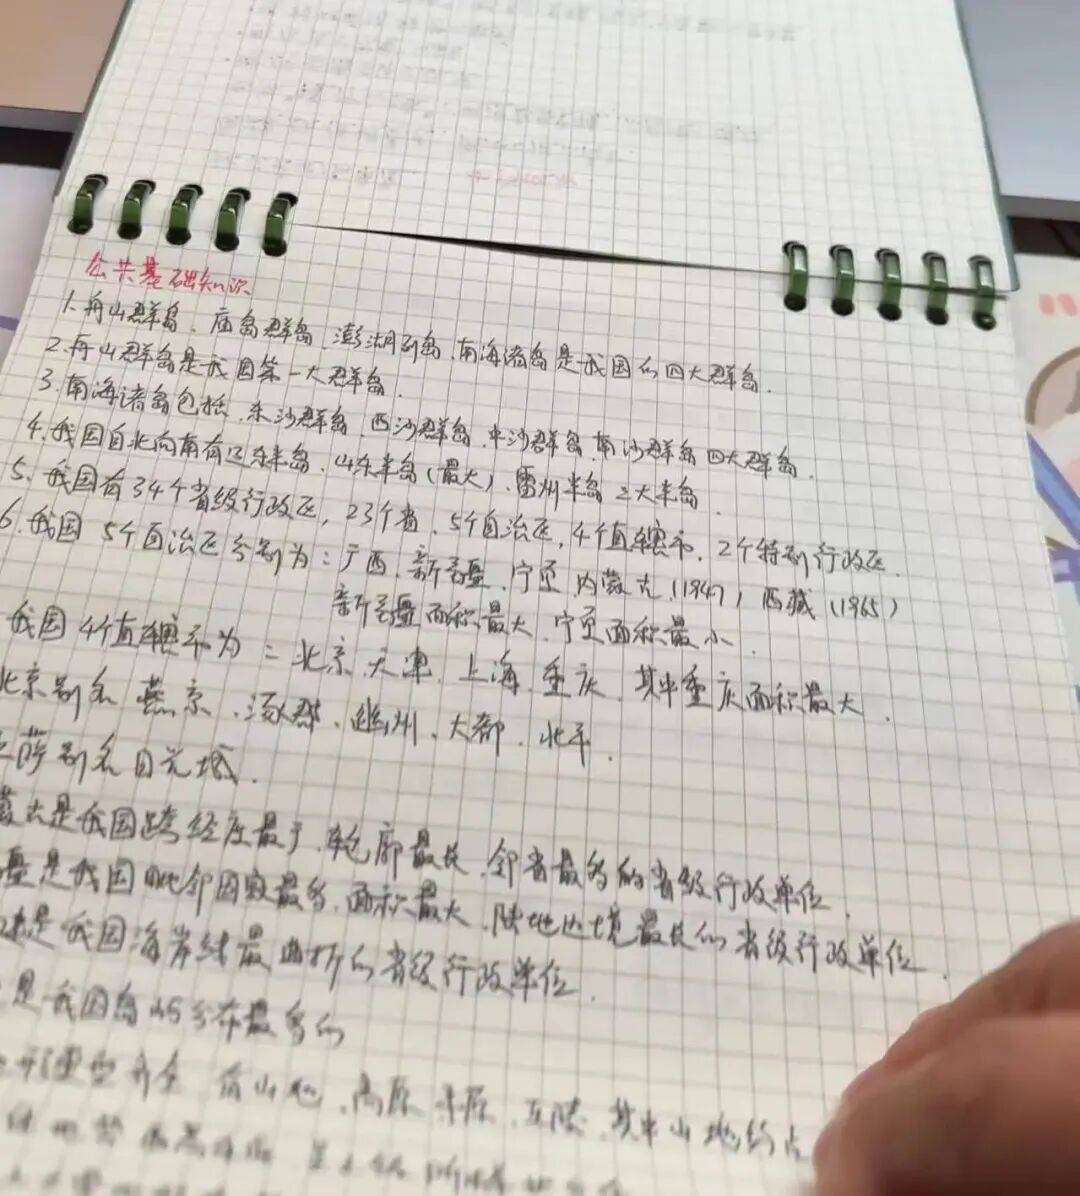 公共基础知识
1.舟山群岛、庙岛群岛、澎湖列岛、南海诸岛是我国的四大群岛.
2.舟山群岛是我国第一大群岛.
3.南海诸岛包括、东沙群岛、西沙群岛、中沙群岛、南沙群岛四大群岛.
4.我国自北向南有辽东半岛、山东半岛(最大)、雷州半岛三大半岛.
5.我国有34个省级行政区,23个省、5个自治区,4个直辖市、2个特别行政区.
6.我国5个自治区分别为:广西、新疆、宁夏、内蒙古(1947)西藏(1965)
新疆面积最大、宁夏面积最小、
我国4个直辖市为:北京、天津、上海、重庆、其中重庆面积最大.
北京别名燕京、涿郡、幽州、大都、北平.
萨别名日光城.
蒙古是我国跨经度最广、轮廓最长、邻省最多的省级行政单位.
疆是我国毗邻国家最多、面积最大、陆地边境最长的省级行政单位.
是我国海岸线最曲折的省级行政单位.
是我国岛屿分布最多的
形类型齐全 有山地、高原、平原、丘陵、其中山地约占